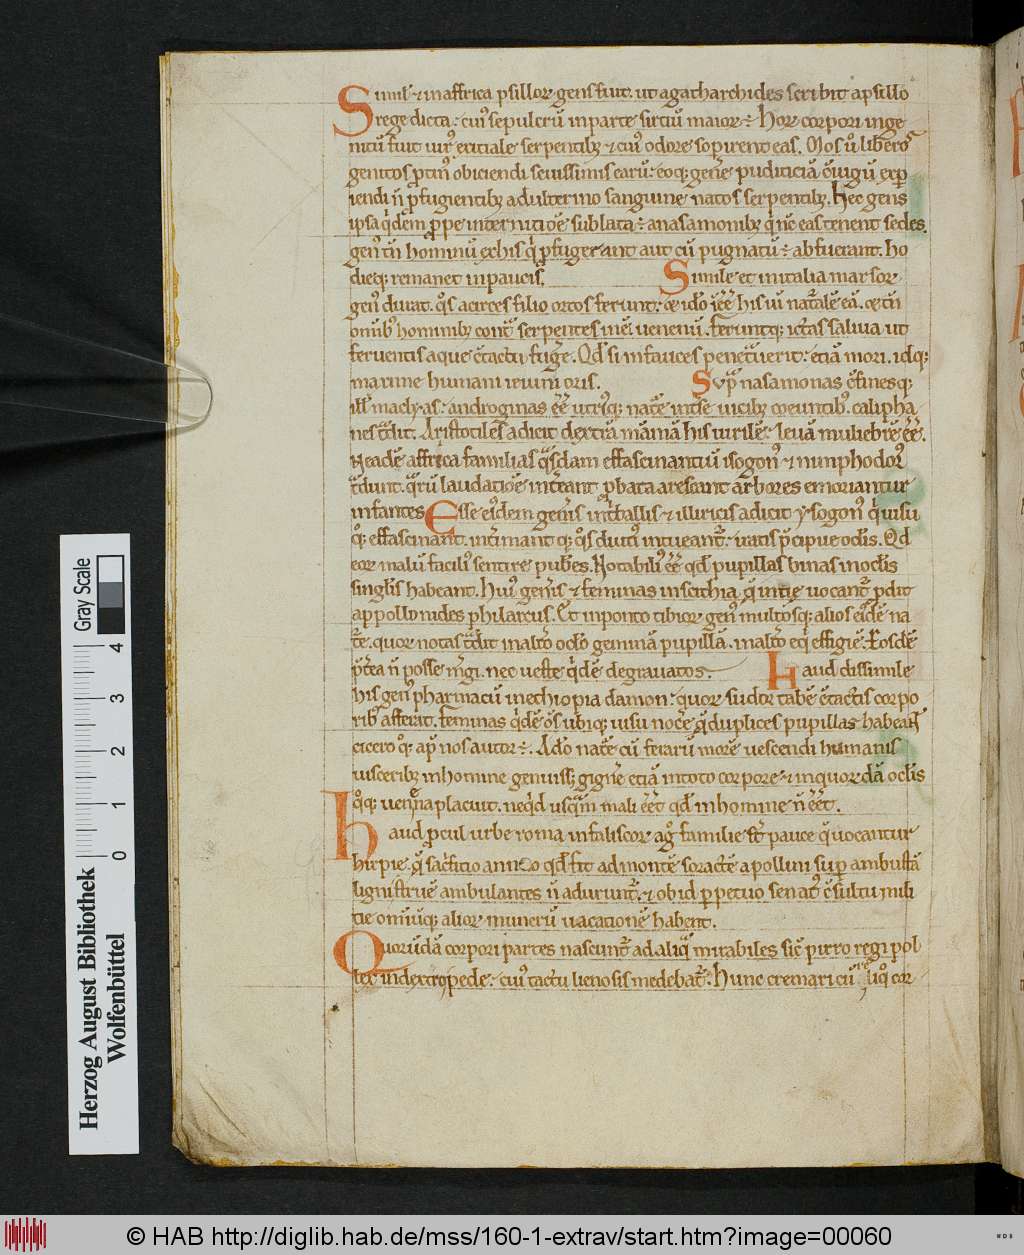 Simil' & in affrica psillor gens fuit. ut agatharchides scribit a psillo
rege dicta. cui' sepulcrū in parte sirciū maior ÷ Hor corpori inge
nitū fuit uir' exitiale serpentib; & cui' odore sopirent eas. Mos u̓ libero
genitos ꝓtin' obiciendi seuissimis earū. eoq; gn̄e pudiciciā ꝯiugū exꝑ
iendi n̄ ꝓfugientib; adulterino sanguine natos serpentib;. Hec gens
ipsa qͥdem ꝓpe internitiōe sublata ÷ a nasamonib; qͥ nc̄ eas tenent sedes.
gen' tn̄ hominū ex his qͥ ꝓfugerant aut cū pugnatū ÷ abfuerant. ho
dieq; remanet in paucis.
Simile et in italia marsor
gen' durat. qͦs a circes filio ortos ferunt.
omīb' hominib; contͣ serpentes
feruentis aque ꝯtactū fug̓e. Qd̄ si in fauces penetͣuerit. etiā mori. idq;
maxime humani ieiuni oris.
Supͣ nasamonas ꝯfinesq;
ill' machyas. androginas ee̅ utriq; nat̓e int̓ se uicib; coeuntib'. calipha
nes tͣdit. Aristotiles adicit dextrā māmā his uirilē. leuā muliebrē ee̅.
N eadē affrica familias qͣsdam effascinantiū isogon' & nimphodor'
tͣdunt. qͣrū laudatiōe int̓eant ꝓbata arescant arbores emoriantur
infantes Esse ei'dem gen̓is in tͥballis & illiricis adicit ysogon' qͥ uisu
qͦ; effascinant. int̓imant q; qͦs diuti' intueant᷑. iratis p̄cipue oclis. Qd̄
eor malū facili' sentire pub̓es. Notabili' ee̅ qd̄ pupillas binas in oclis
singlis habeant. Hui' gen̓is & feminas in scithia q̄ uocant᷑ ꝓdit
appollonides philarcus. Et in ponto tibior gen' multosq; alios eiꝰdē na
t̓e. quor notas tͣdit in alt̓o oclo geminā pupillā. in alt̓o eqͥ effigiē. Eosdē
p̄t̓ea n̄ posse m̓gi. nec ueste qͥdē degrauatos.
Haud dissimile
his gen' pharmacū in ethiopia damon. quor sudor tabē ꝯtactis corpo
rib' afferat. feminas qͥdē om̄s ubiq; uisu noc̓e q̄ duplices pupillas habeat
cicero qͦ; ap' nos autor ÷. Adeo nat̓e cū ferarū morē uescendi humanis
uisceribꝰ in homine genuiss; gign̓e etiā in toto corpore & in quor dā oclis
qͦq; uenena placuit. ne qͥd usqͣm mali ee̅t qd̄ in homine n̄ ee̅t.
Haud ꝓcul urbe roma in faliscor agͦ familie st̄ pauce q̄ uocantur
hirpie. q̄ sacͥficio annuo qd̄ fit ad montē soractē apollini suꝑ ambustā
ligni struē ambulantes n̄ adurunt᷑. & ob id ꝑpetuo senat' ꝯsultu mili
tie omīuq; alior munerū uacationē habent.
Quorūdā corpori partes nascunt᷑ ad aliqͣ mirabiles sic̄ pirro regi pol
lex in dextro pede. cui' tactu lienosis medebat᷑. Hunc cremari cū reliqͦ cor
Herzog August Bibliothek
Wolfenbüttel
Gray Scale
0 1 2 3 4
© HAB http://diglib.hab.de/mss/160-1-extrav/start.htm?image=00060